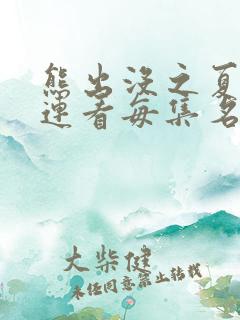 熊出没之夏
连看每集名
大柴健
未经同意禁止转载